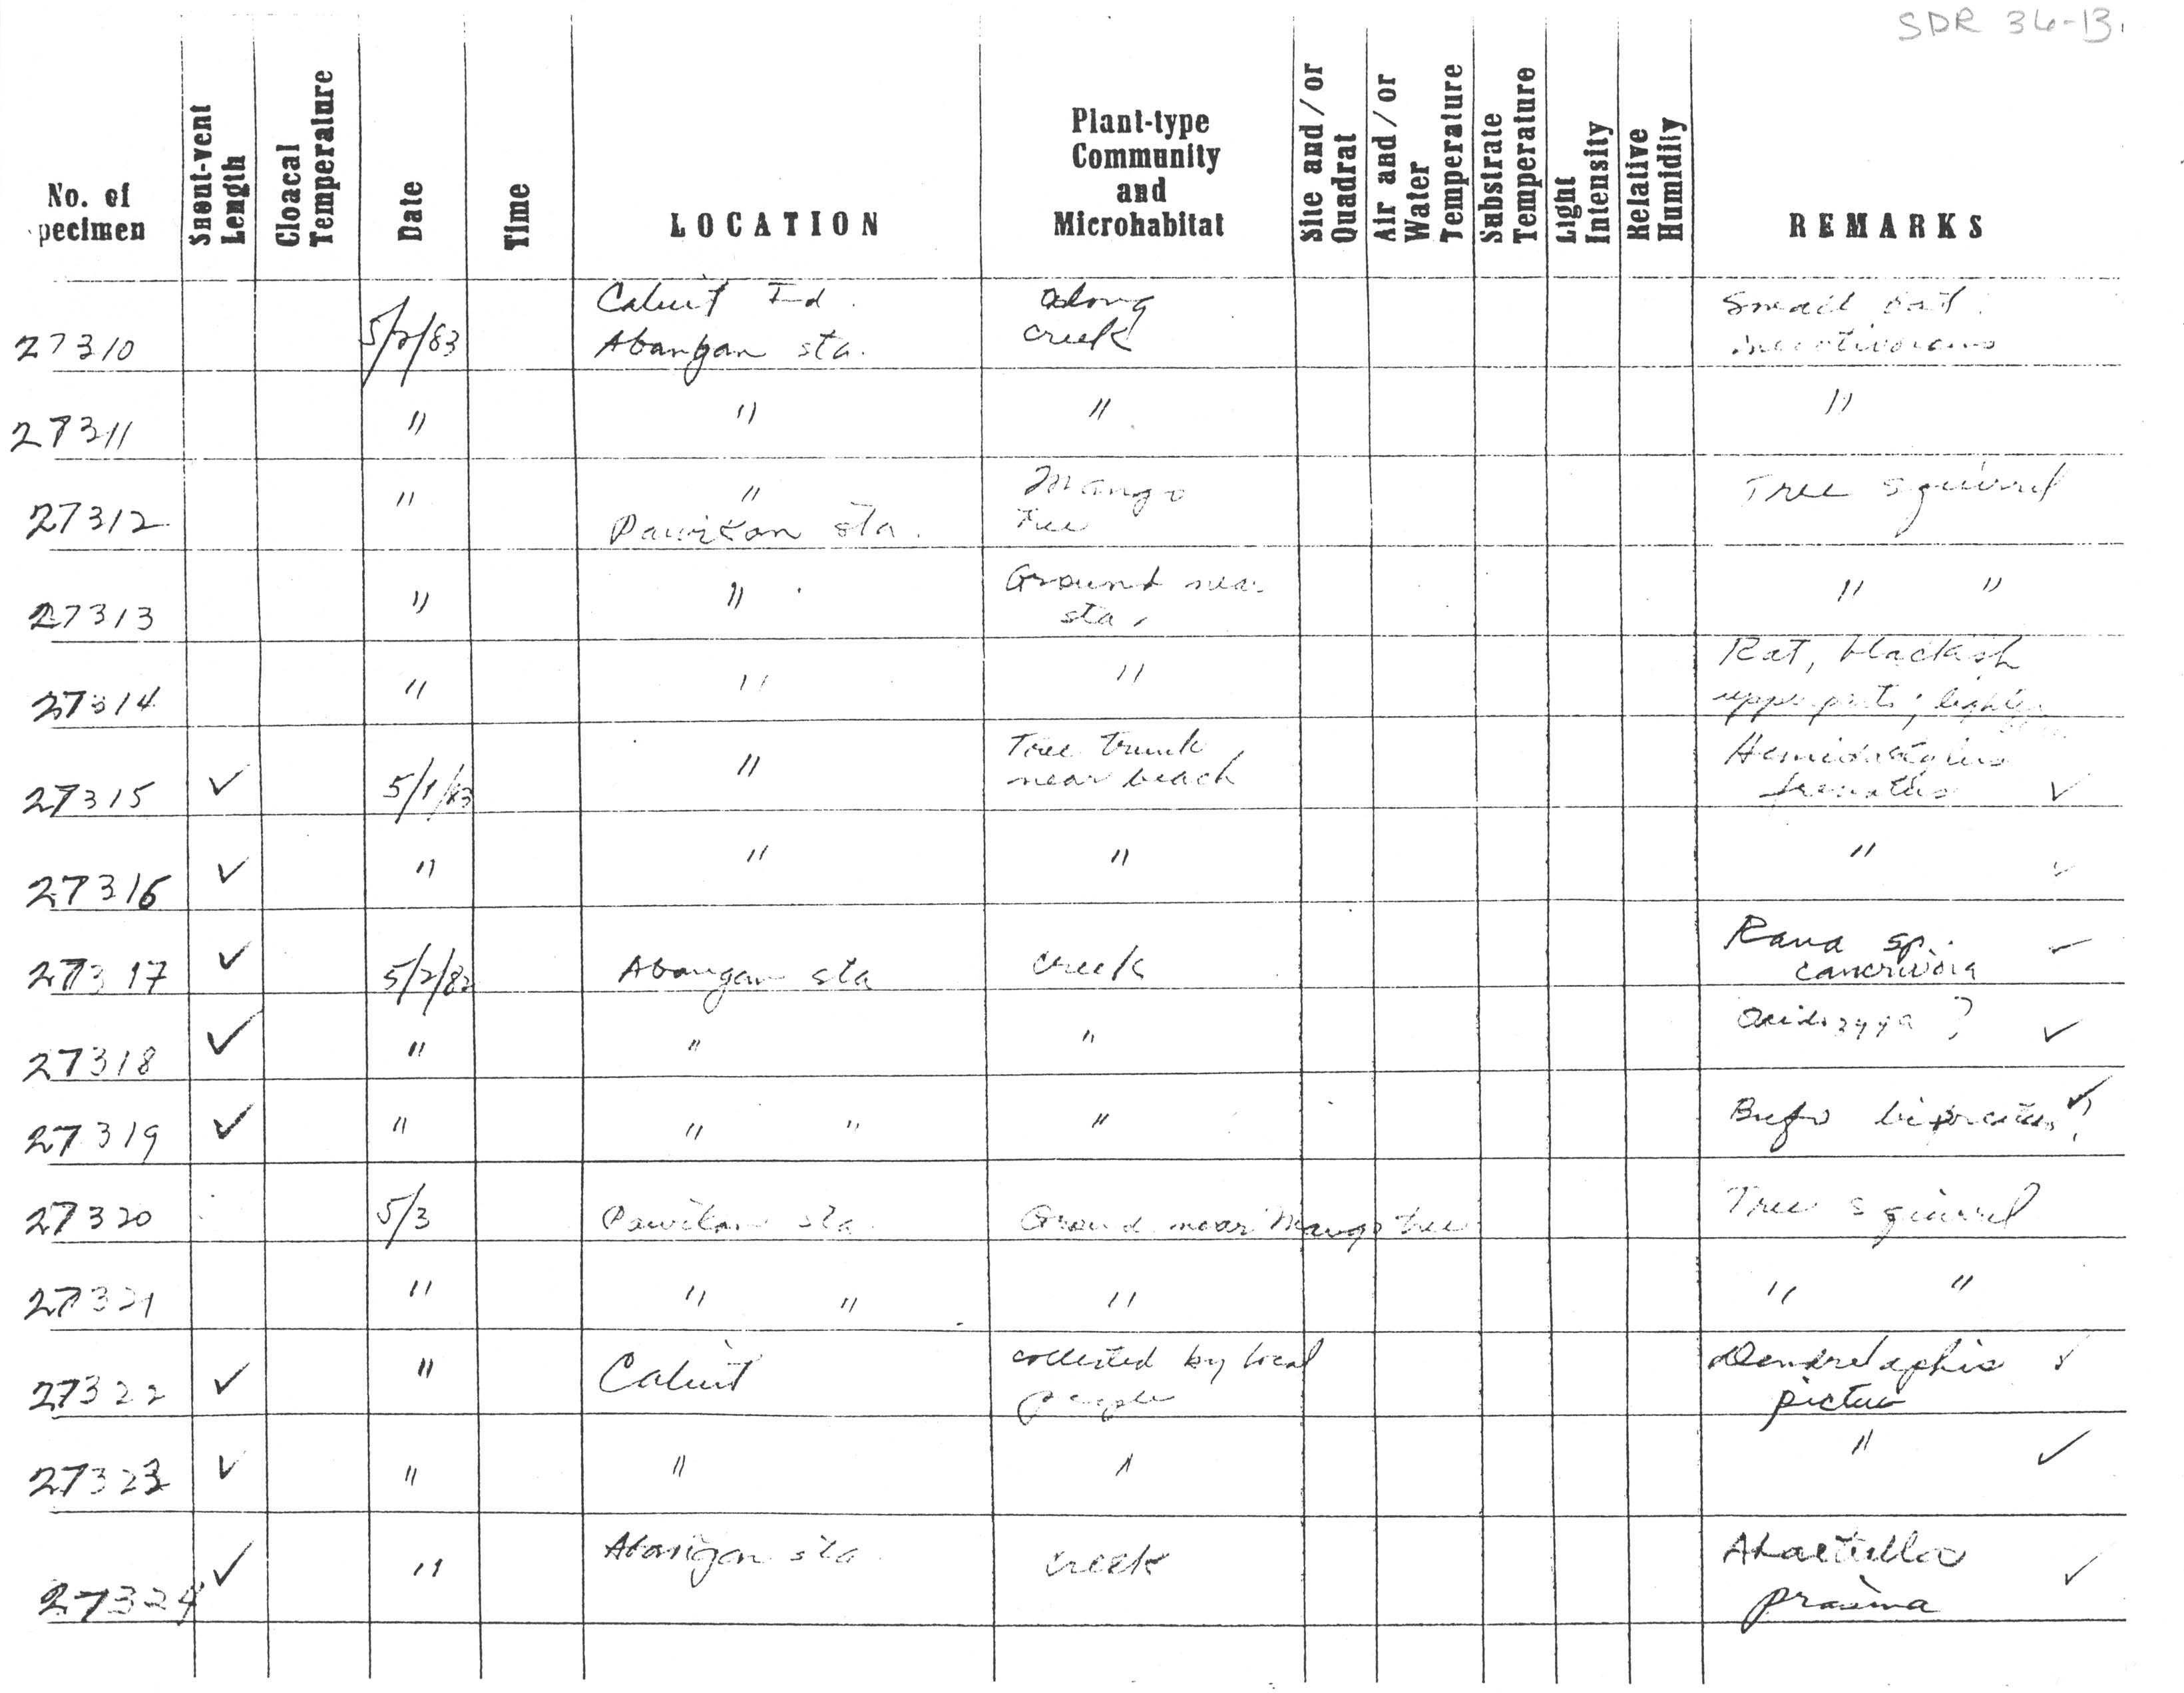 SDR 36-13.
No. of
pecimen
Snout-vent
Length
Cloacal
Temperature
Date
Time
LOCATION
Plant-type
Community
and
Microhabitat
Site and/or
Quadrat
Air and/or
Water
Temperature
Substrate
Temperature
Light
Intensity
Relative
Humidity
REMARKS
27310 5/2/83 Caluit Id. Abangan sta. along creek Small bat.
27311 " " " "
27312 " " Pawikan sta. Mango tree Tree squirrel
27313 " " Ground near sta. " "
27314 " " " Rat, blackish upper parts; lighter
27315 ✓ 5/1/83 " Tree trunk near beach Hemidactylus frenatus ✓
27316 ✓ " " " " ✓
27317 ✓ 5/2/83 Abangan sta creek Rana sp. cancrivora ✓
27318 ✓ " " " ? ✓
27319 ✓ " " " " Bufo biporcatus? ✓
27320 5/3 Pawikan sta. Ground near Mango tree Tree squirrel
27321 " " " " " "
27322 ✓ " Caluit collected by local people Dendrelaphis pictus ✓
27323 ✓ " " " " ✓
27324 ✓ " Abangan sta. creek Ahaetulla prasina ✓